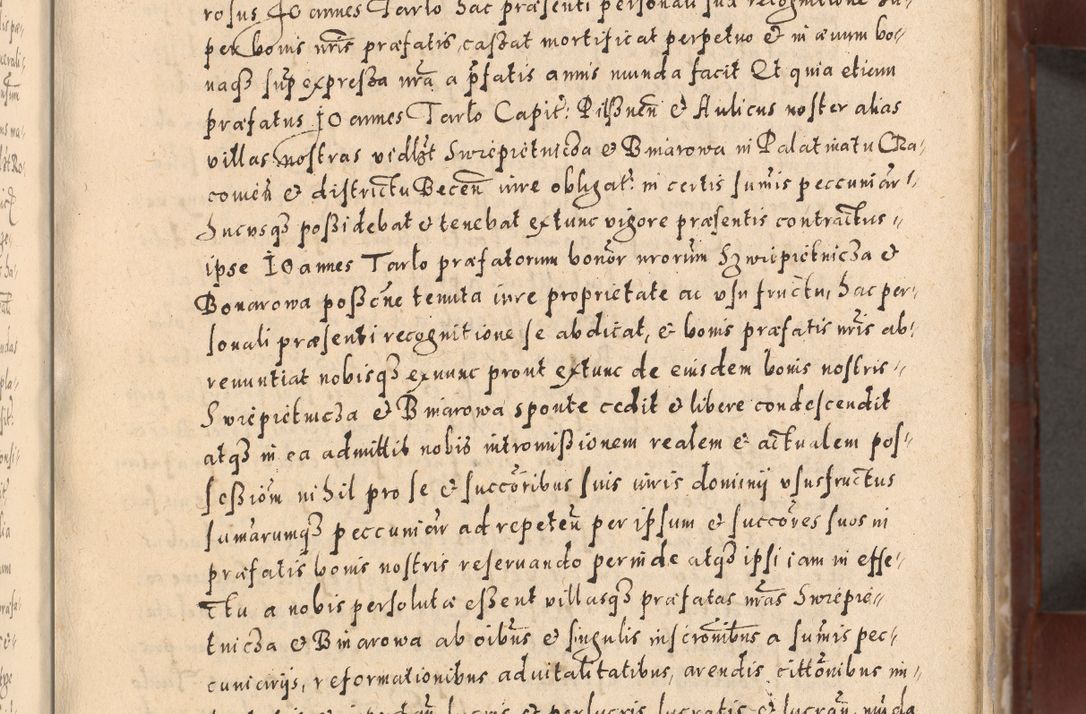 rosus Ioannes Tarlo hac præsenti personali sua recognitione su-
per bonis nr̃is præfatis, cassat mortificat perpetuo & in æuum bo-
naqꝫ sup expressa nr̃a a p̃fatis annis munda facit Et quia etiam
præfatus Ioannes Tarlo Capit: Pilsnen̄ & Aulicus noster alias
villas nostras vidlꝫt Swiepietnicza & Binarowa in Palatinatu Cra-
couien̄ & districtu Becen̄ iure obligat: in certis sum̄is peccuniar̄
hucusqꝫ possidebat & tenebat extunc vigore præsentis contractus
ipse Ioannes Tarlo præfatorum bonor̄ nrorum̄ Szwiepietnicza &
Bonarowa poss̄one tenuta iure proprietate ac vsu fructu, hac per-
sonali præsenti recognitione se abdicat, & bonis præfatis nr̃is ab-
renuntiat nobisqꝫ exnunc prout extunc de eiusdem bonis nostris
Swiepietnicza & Binarowa sponte cedit & libere condescendit
atqꝫ in ea admittit nobis intromissionem realem & actualem pos-
sessiōm nihil pro se & succōribus suis iuris dominij vsusfructus
sum̄arumqꝫ peccuniar̄ ad repeten̄ per ipsum & succōres suos in
præfatis bonis nostris reseruando perinde atqꝫ ipsi iam in effe-
ctu a nobis persolutæ essent villasqꝫ præfatas nr̃as Swiepie-
tnicza & Binarowa ab oibus̄ & singulis inscrōnibus a sum̄is pec-
cuniarijs, reformationibus aduitalitatibus, arendis cittōnibus in-